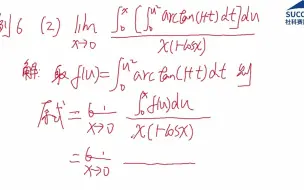 例6 (2) lim x→0 ∫₀ˣ [∫₀^{u²} arctan(1+t)dt]du / x(1-cosx)
解 取 f(u)=∫₀^{u²} arctan(1+t)dt 则
原式 = lim x→0 ∫₀ˣ f(u)du / x(1-cosx)
= lim x→0
SUCC
社科赛